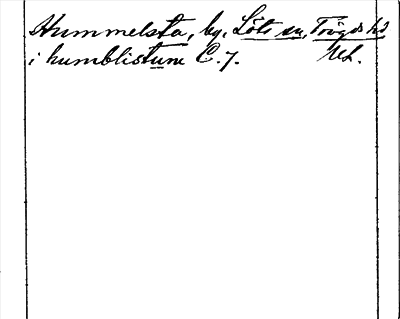 Hummelsta, by, Löts sn, Trögds hd
i humblistum C. 7. Upl.